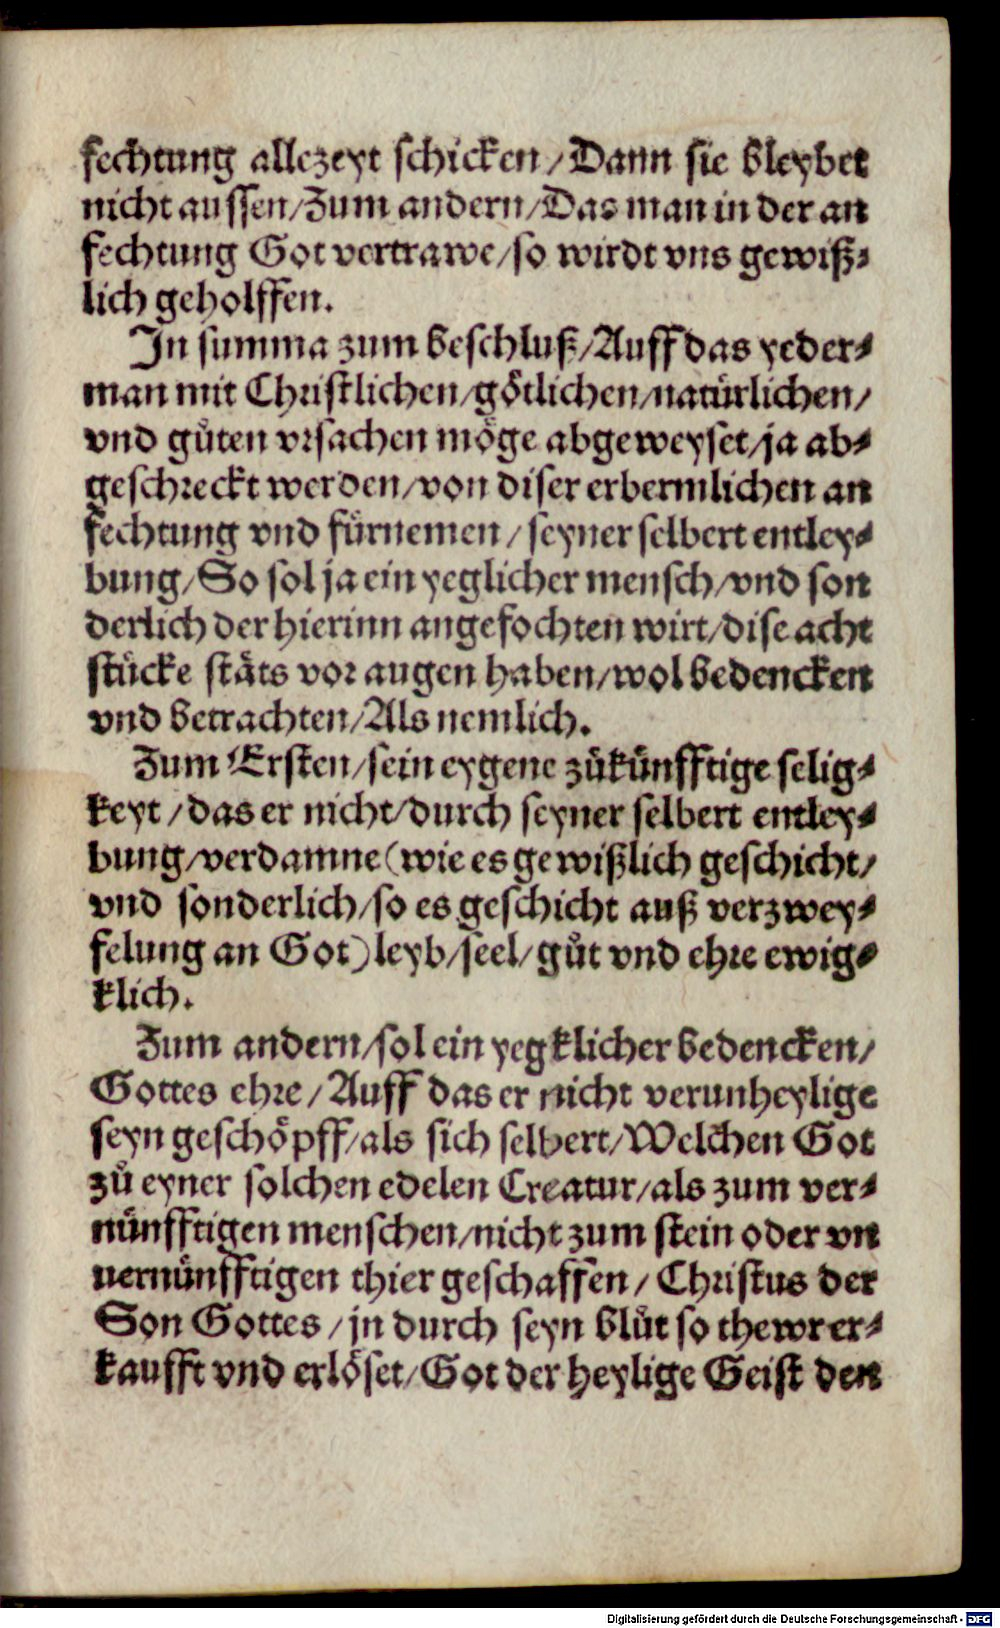 fechtung allezeyt schicken / Dann sie bleybet
nicht aussen / Zum andern / Das man in der an
fechtung Got vertrawe / so wirdt vns gewiß⸗
lich geholffen.
In summa zum beschluß / Auff das yeder⸗
man mit Christlichen / götlichen / natürlichen /
vnd gůten vrsachen möge abgeweyset / ja ab⸗
geschreckt werden / von diser erbermlichen an
fechtung vnd fürnemen / seyner selbert entley⸗
bung / So sol ja ein yeglicher mensch / vnd son
derlich der hierinn angefochten wirt / dise acht
stücke stäts vor augen haben / wol bedencken
vnd betrachten / Als nemlich.
Zum Ersten / sein eygene zůkünfftige selig⸗
keyt / das er nicht / durch seyner selbert entley⸗
bung / verdamne (wie es gewißlich geschicht /
vnd sonderlich / so es geschicht auß verzwey⸗
felung an Got) leyb / seel / gůt vnd ehre ewig⸗
klich.
Zum andern / sol ein yegklicher bedencken /
Gottes ehre / Auff das er nicht verunheylige
seyn geschöpff / als sich selbert / Welchen Got
zů eyner solchen edelen Creatur / als zum ver⸗
nünfftigen menschen / nicht zum stein oder vn
uernünfftigen thier geschaffen / Christus der
Son Gottes / jn durch seyn blůt so thewr er⸗
kaufft vnd erlöset / Got der heylige Geist den
Digitalisierung gefördert durch die Deutsche Forschungsgemeinschaft - DFG